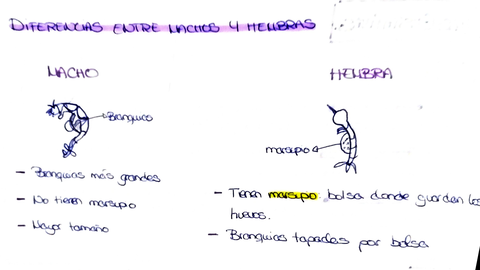 DIFERENCIAS ENTRE MACHOS Y HEMBRAS
MACHO
Branquias
- Branquias más grandes
- No tienen marsupio
- Mayor tamaño
HEMBRA
marsupio
- Tienen marsupio: bolsa donde guardan los
huevos.
- Branquias tapadas por bolsa